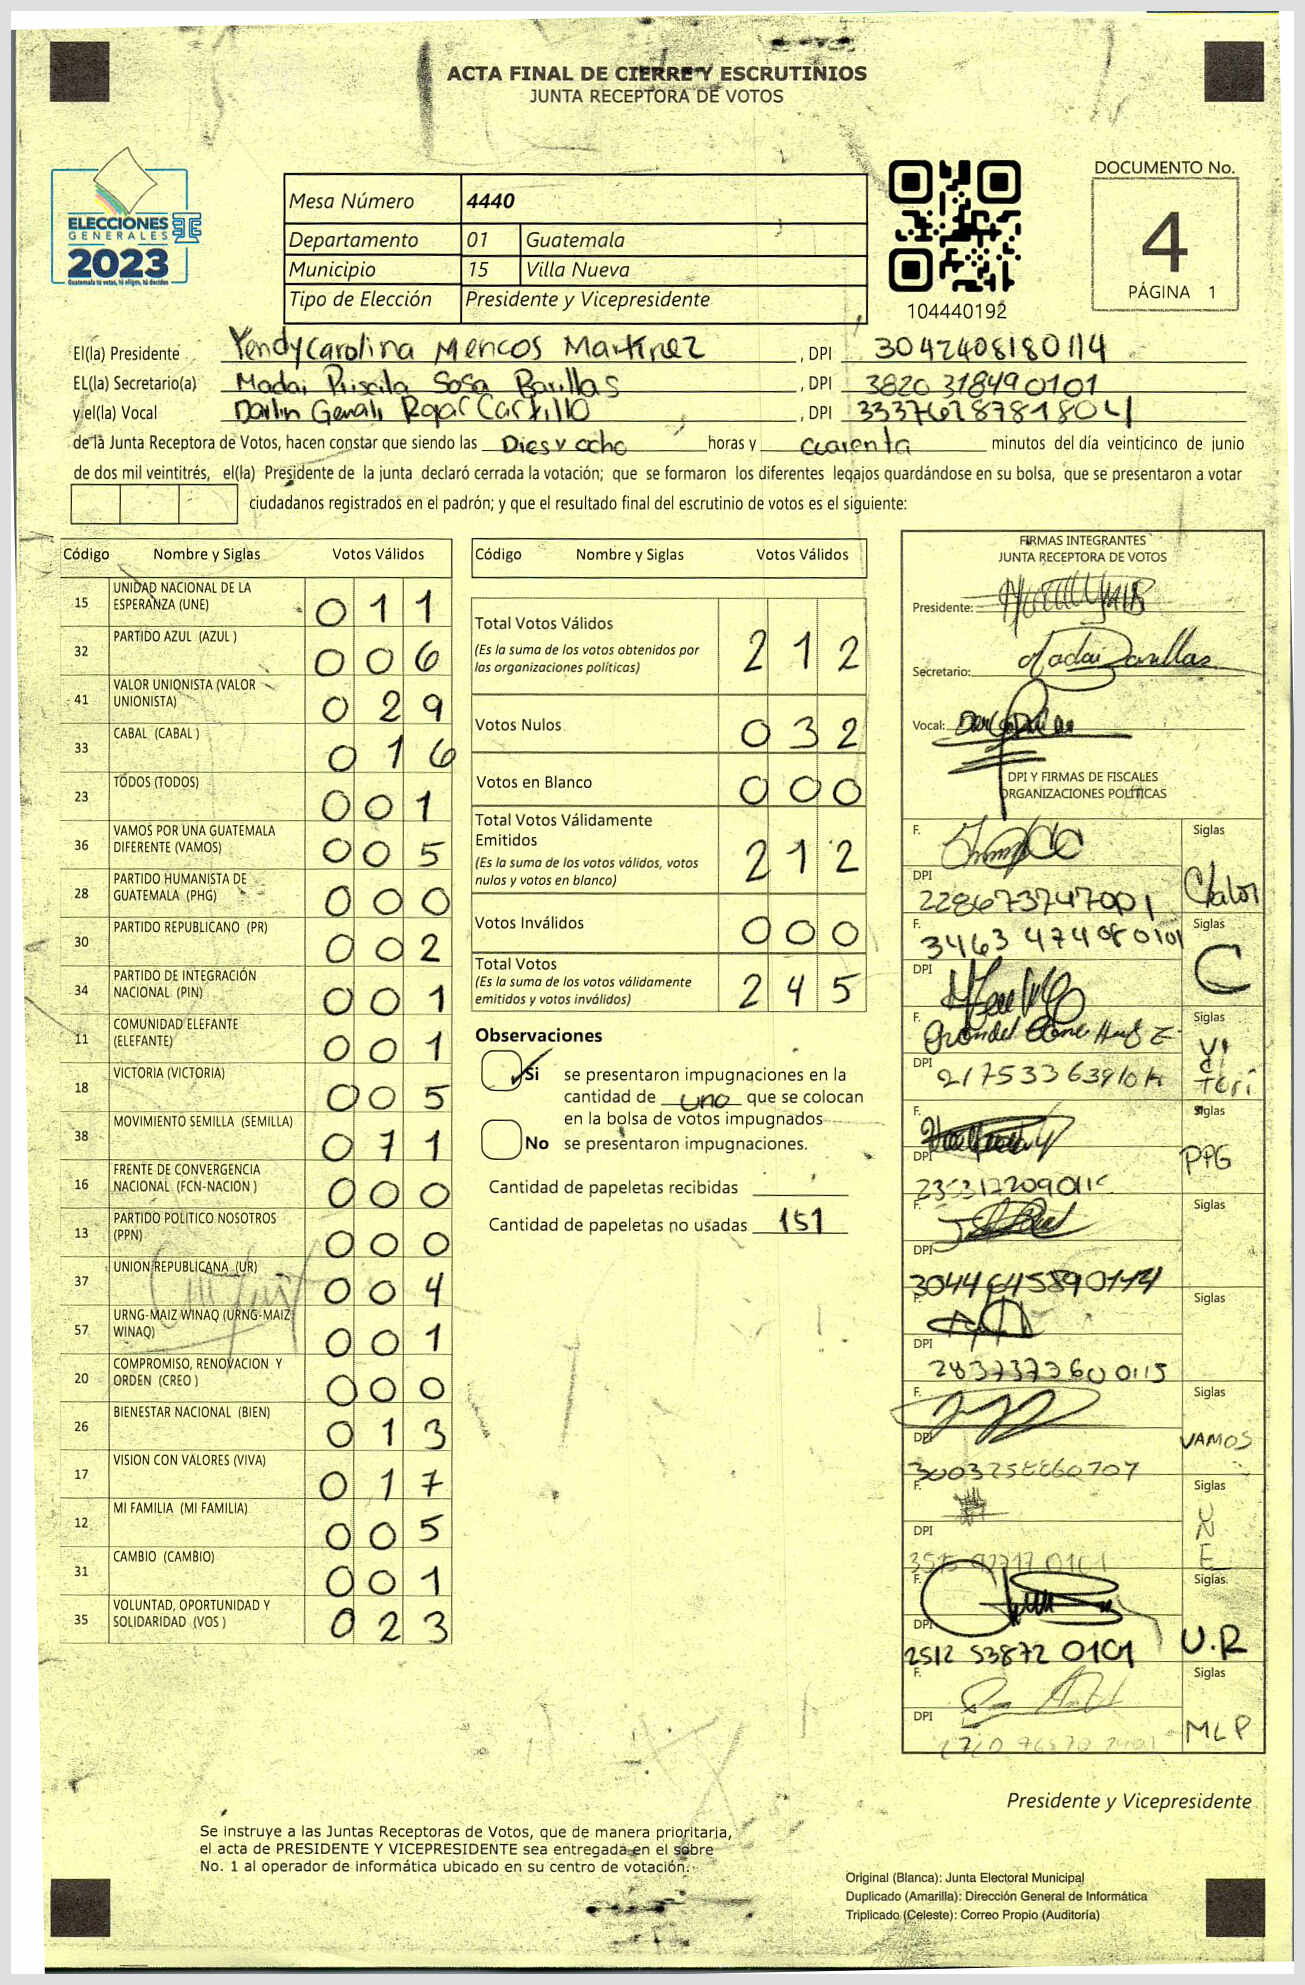 ACTA FINAL DE CIERRE Y ESCRUTINIOS
JUNTA RECEPTORA DE VOTOS
ELECCIONES
GENERALES
2023
Guatemala tú votas, tú eliges, tú decides
Mesa Número 4440
Departamento 01 Guatemala
Municipio 15 Villa Nueva
Tipo de Elección Presidente y Vicepresidente
104440192
DOCUMENTO No.
4
PÁGINA 1
El(la) Presidente Yendy Carolina Mencos Martinez, DPI 3042408180114
EL(la) Secretario(a) Madai Priscila Sosa Barillas, DPI 3820318490101
y el(la) Vocal Darlin, DPI
de la Junta Receptora de Votos, hacen constar que siendo las Dies y ocho horas y cuarenta minutos del día veinticinco de junio
de dos mil veintitrés, el(la) Presidente de la junta declaró cerrada la votación; que se formaron los diferentes legajos guardándose en su bolsa, que se presentaron a votar
ciudadanos registrados en el padrón; y que el resultado final del escrutinio de votos es el siguiente:
Código Nombre y Siglas Votos Válidos
15 UNIDAD NACIONAL DE LA ESPERANZA (UNE) 011
32 PARTIDO AZUL (AZUL ) 006
41 VALOR UNIONISTA (VALOR UNIONISTA) 029
33 CABAL (CABAL ) 016
23 TODOS (TODOS) 001
36 VAMOS POR UNA GUATEMALA DIFERENTE (VAMOS) 005
28 PARTIDO HUMANISTA DE GUATEMALA (PHG) 000
30 PARTIDO REPUBLICANO (PR) 002
34 PARTIDO DE INTEGRACIÓN NACIONAL (PIN) 001
11 COMUNIDAD ELEFANTE (ELEFANTE) 001
18 VICTORIA (VICTORIA) 005
38 MOVIMIENTO SEMILLA (SEMILLA) 071
16 FRENTE DE CONVERGENCIA NACIONAL (FCN-NACION ) 000
13 PARTIDO POLITICO NOSOTROS (PPN) 000
37 UNION REPUBLICANA (UR) 004
57 URNG-MAIZ WINAQ (URNG-MAIZ WINAQ) 001
20 COMPROMISO, RENOVACION Y ORDEN (CREO ) 000
26 BIENESTAR NACIONAL (BIEN) 013
17 VISION CON VALORES (VIVA) 017
12 MI FAMILIA (MI FAMILIA) 005
31 CAMBIO (CAMBIO) 001
35 VOLUNTAD, OPORTUNIDAD Y SOLIDARIDAD (VOS ) 023
Código Nombre y Siglas Votos Válidos
Total Votos Válidos 212
(Es la suma de los votos obtenidos por
las organizaciones políticas)
Votos Nulos 032
Votos en Blanco 000
Total Votos Válidamente
Emitidos 212
(Es la suma de los votos válidos, votos
nulos y votos en blanco)
Votos Inválidos 000
Total Votos 245
(Es la suma de los votos válidamente
emitidos y votos inválidos)
Observaciones
Si se presentaron impugnaciones en la
cantidad de uno que se colocan
en la bolsa de votos impugnados
No se presentaron impugnaciones.
Cantidad de papeletas recibidas
Cantidad de papeletas no usadas 151
FIRMAS INTEGRANTES
JUNTA RECEPTORA DE VOTOS
Presidente:
Secretario: Madai Barillas
Vocal:
DPI Y FIRMAS DE FISCALES
ORGANIZACIONES POLÍTICAS
F. Siglas
DPI
F. 3463 47408 0101 Siglas
DPI C
F. Siglas
DPI
F. Siglas
DPI PPG
F. Siglas
DPI
F. Siglas
DPI
2837373600115
F. Siglas
DPI VAMOS
F. Siglas
DPI UNE
F. Siglas
DPI
2512 53872 0101 U.R
F. Siglas
DPI MLP
Presidente y Vicepresidente
Se instruye a las Juntas Receptoras de Votos, que de manera prioritaria,
el acta de PRESIDENTE Y VICEPRESIDENTE sea entregada en el sobre
No. 1 al operador de informática ubicado en su centro de votación.
Original (Blanca): Junta Electoral Municipal
Duplicado (Amarilla): Dirección General de Informática
Triplicado (Celeste): Correo Propio (Auditoría)